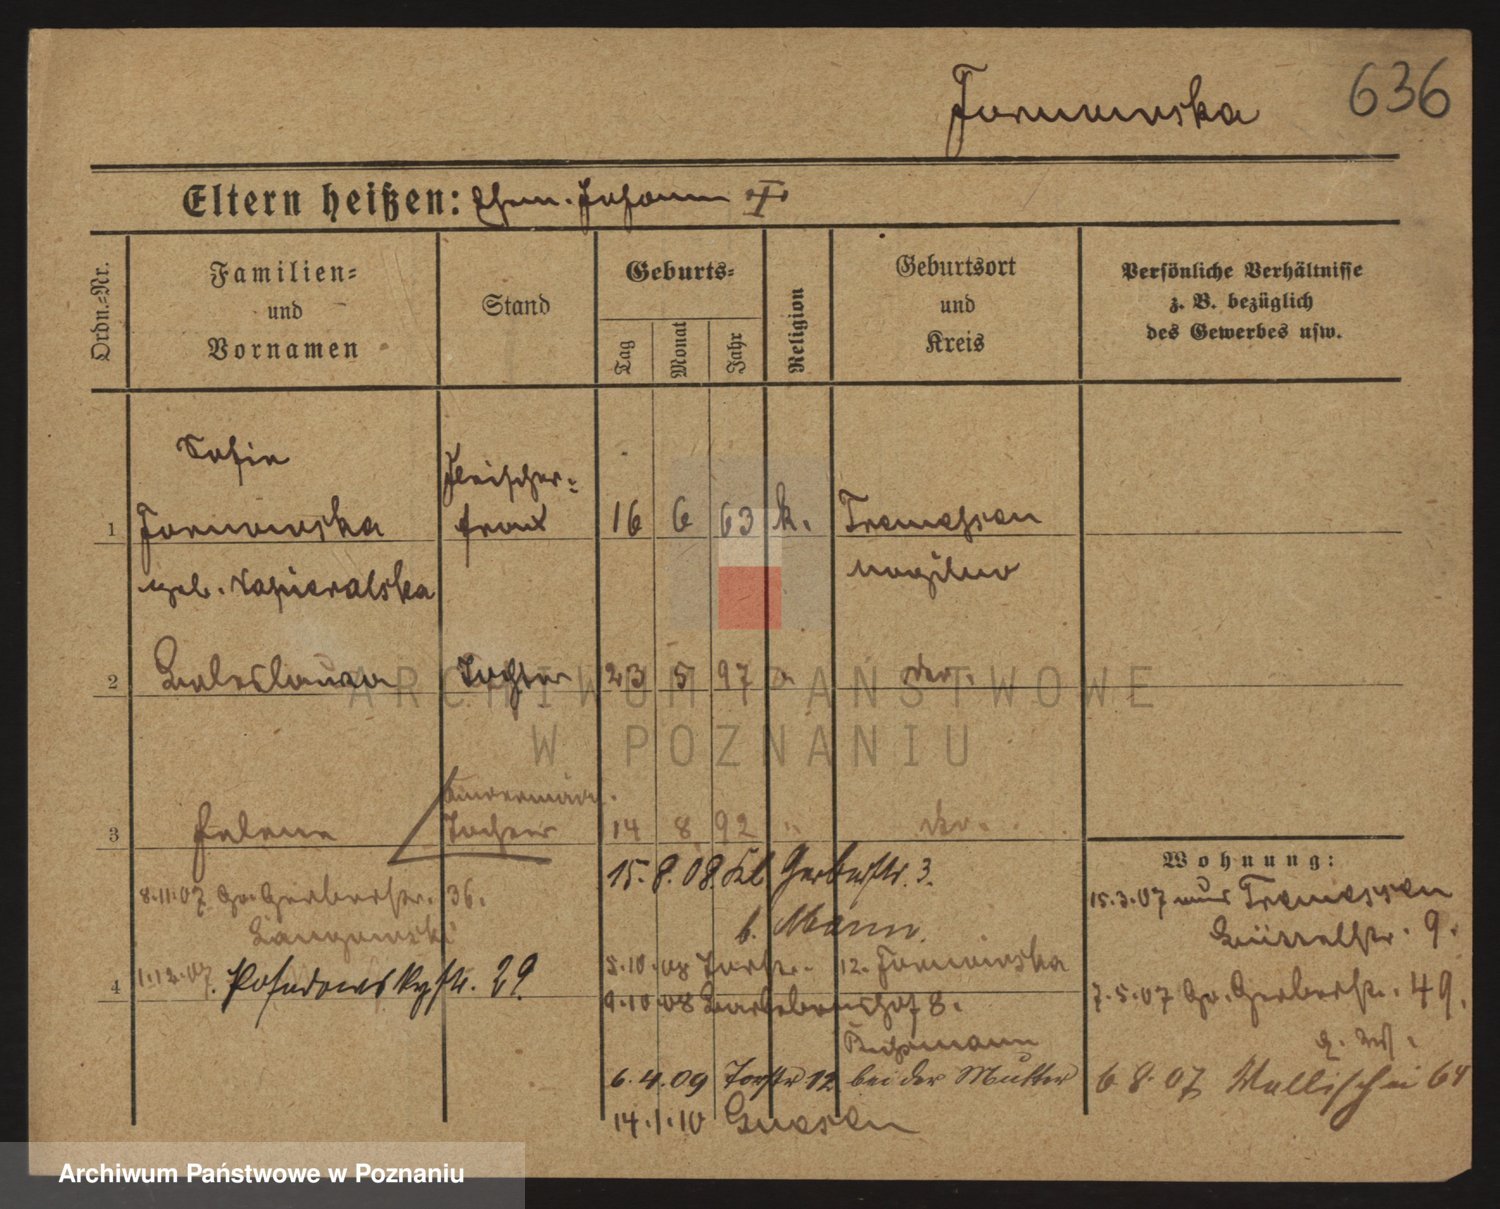 636
Eltern heißen: Ehem. Johann
Ordn.=Nr.
Familien=
und
Vornamen
Stand
Geburts=
Tag
Monat
Jahr
Religion
Geburtsort
und
Kreis
Persönliche Verhältnisse
z. B. bezüglich
des Gewerbes usw.
Sofie
Fleischer=
1
frau
16 6 63 k.
Tremessen
geb. Kapieralska
Mogilno
2 Boleslawa Tochter 23 5 97 " do.
3 Helene Tochter 14 8 92 " do.
Wohnung:
15.8.08. Kl Gerberstr. 3.
b. Mann.
15.3.07 aus Tremessen
9.
8.11.07 Gr. Gerberstr. 36.
4
1.12.07. Posadowskystr. 29.
5.10.08 Torstr. 12.
9.10.08 8.
7.5.07 Gr. Gerberstr. 49.
6.4.09 Torstr 12 bei der Mutter
6 8.07 Wallischei 64
14.1.10 Gnesen
ARCHIWUM PAŃSTWOWE
W POZNANIU
Archiwum Państwowe w Poznaniu